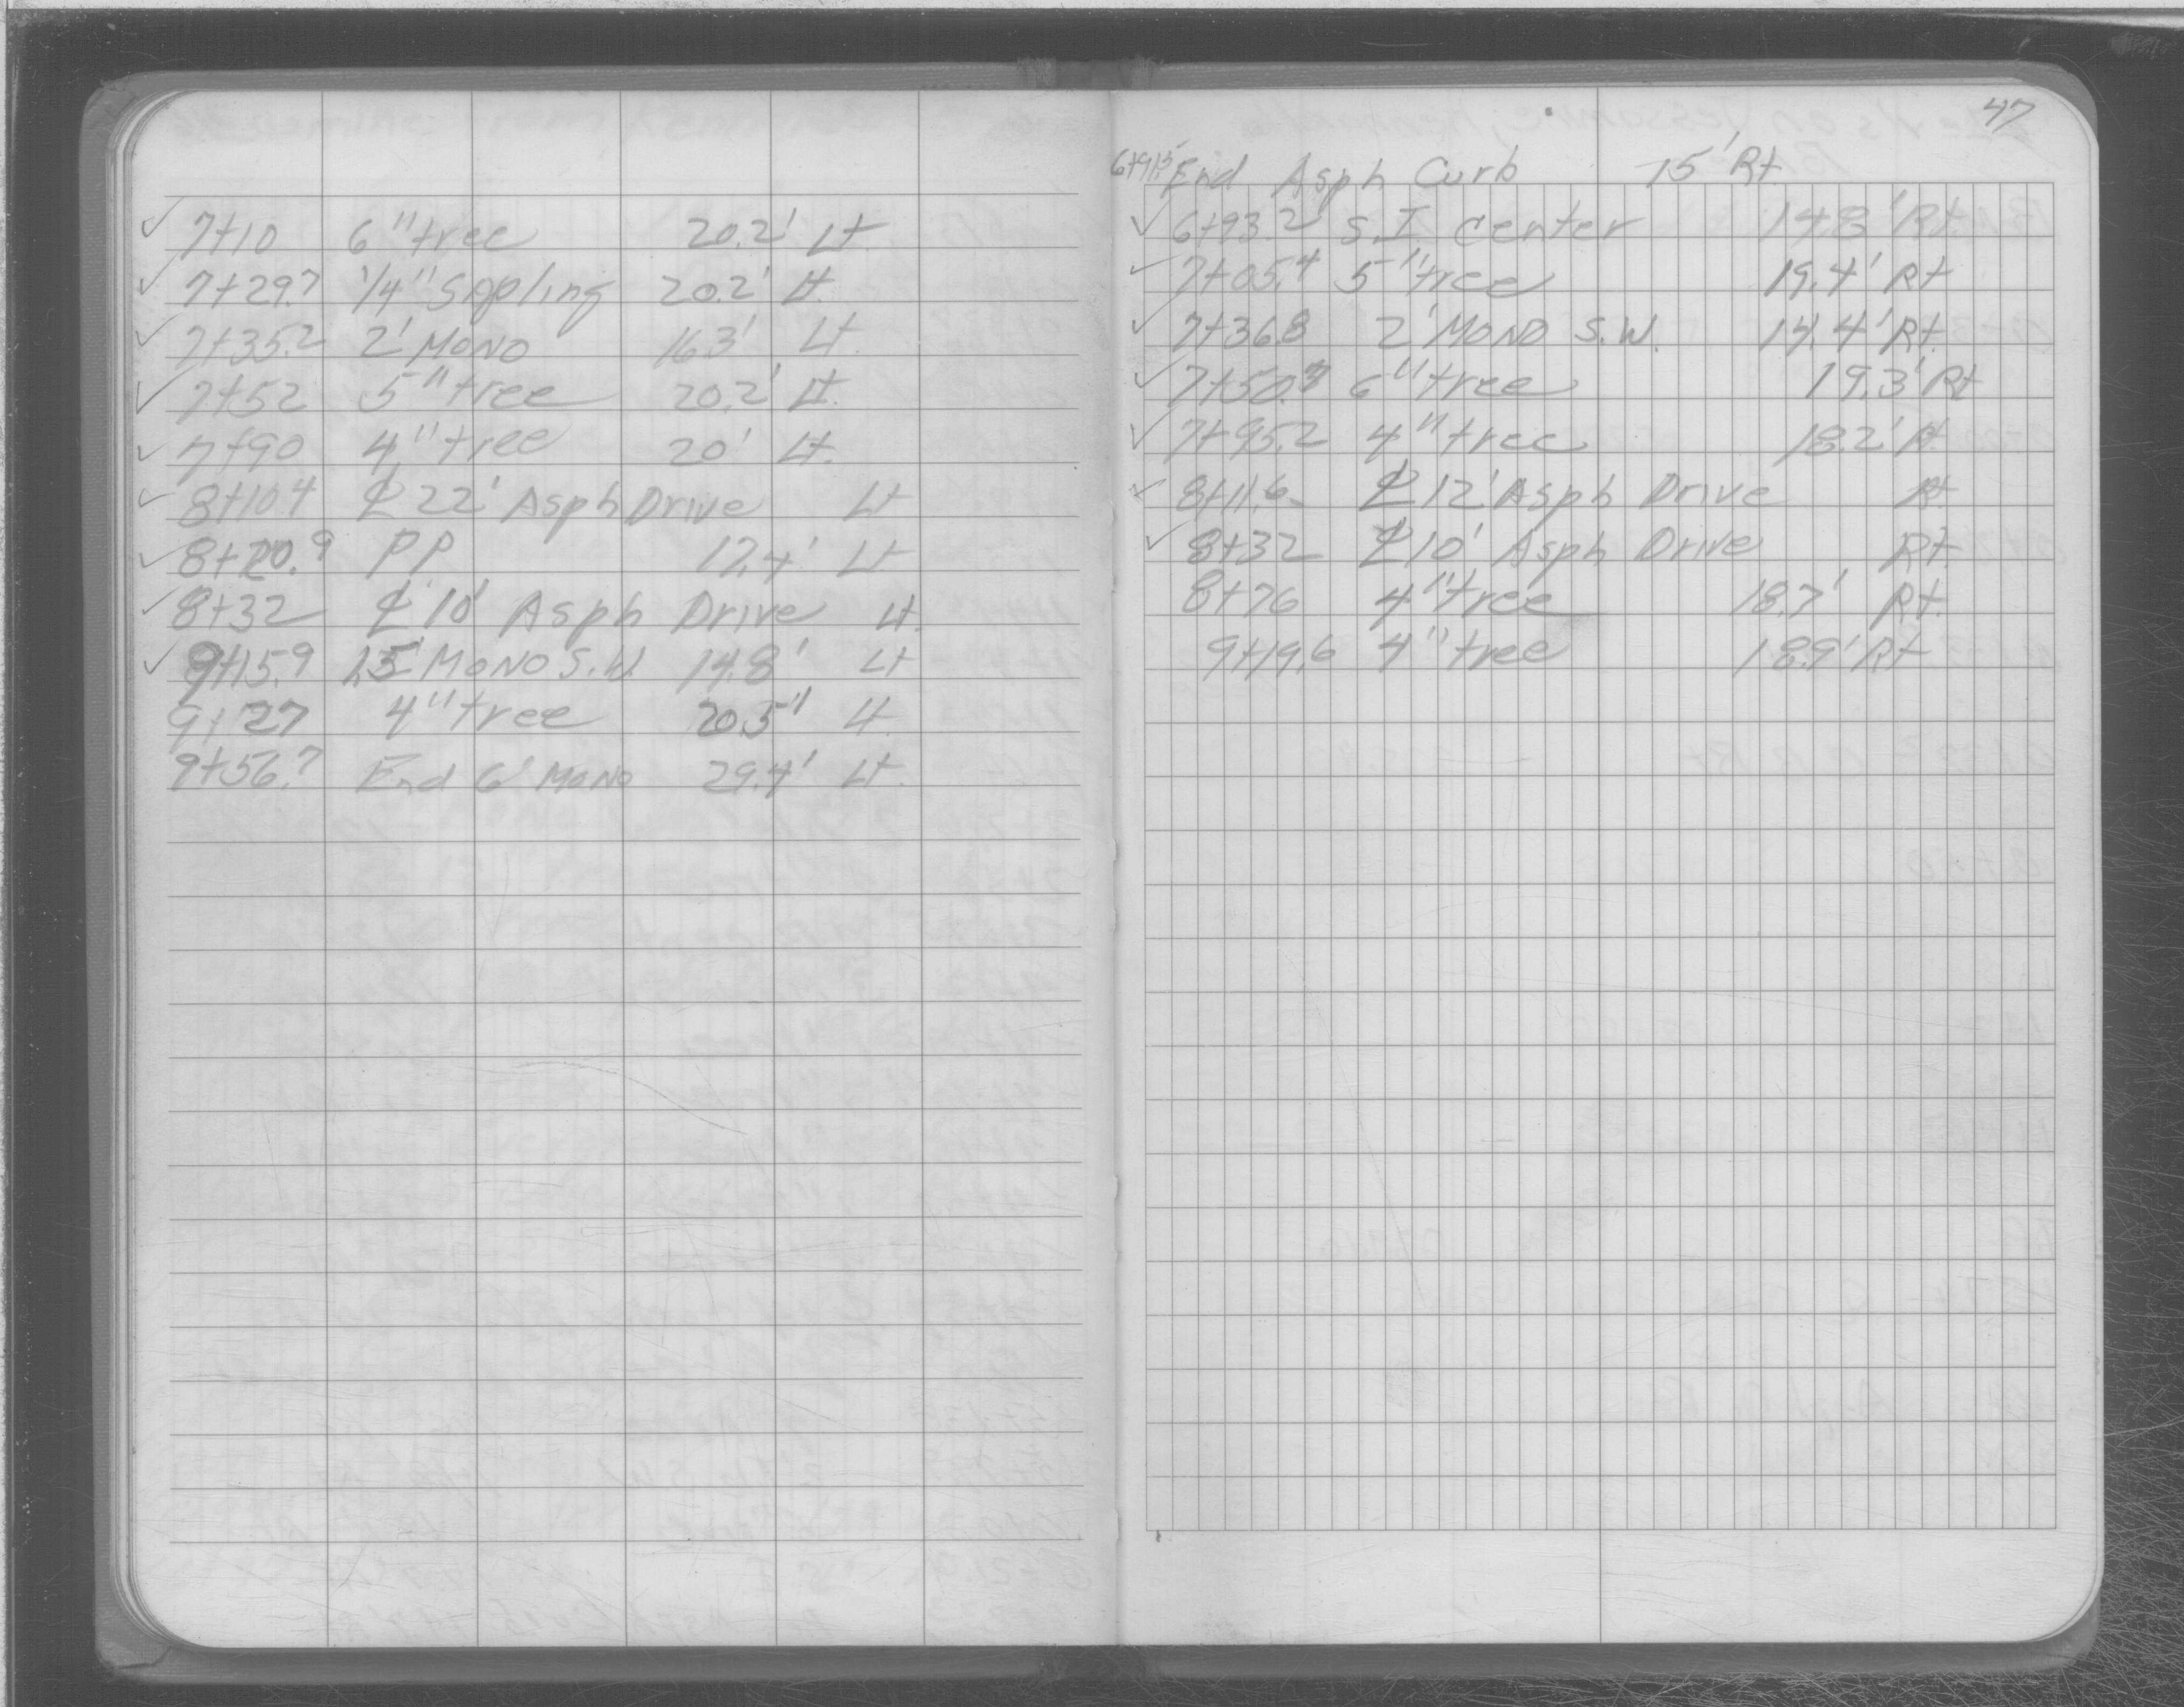 ✓ 7+10 6" tree 20.2' Lt.
✓ 7+29.7 1/4" Sapling 20.2' Lt.
✓ 7+35.2 2' MONO 16.3' Lt.
✓ 7+52 5" tree 20.2' Lt.
✓ 7+90 4" tree 20' Lt.
✓ 8+10.4 ℄ 22' Asph Drive Lt
✓ 8+20.9 PP 17.4' Lt
✓ 8+32 ℄ 10' Asph Drive Lt.
✓ 9+15.9 1.5' MONO S.W. 14.8' Lt
9+27 4" tree 20.5" Lt.
9+56.7 End 6' MONO 29.4' Lt.
47
End Asph Curb 15' Rt.
✓ 6+93.2 S.I. center 14.8' Rt.
✓ 7+05.4 5" tree 19.4' Rt
✓ 7+36.8 2' MONO S.W. 14.4' Rt.
✓ 7+50.7 6" tree 19.3' Rt
✓ 7+95.2 4" tree 18.2' Rt.
✓ 8+11.6 ℄ 12' Asph Drive Rt.
✓ 8+32 ℄ 10' Asph Drive Rt.
8+76 4" tree 18.7' Rt.
9+19.6 4" tree 18.9' Rt